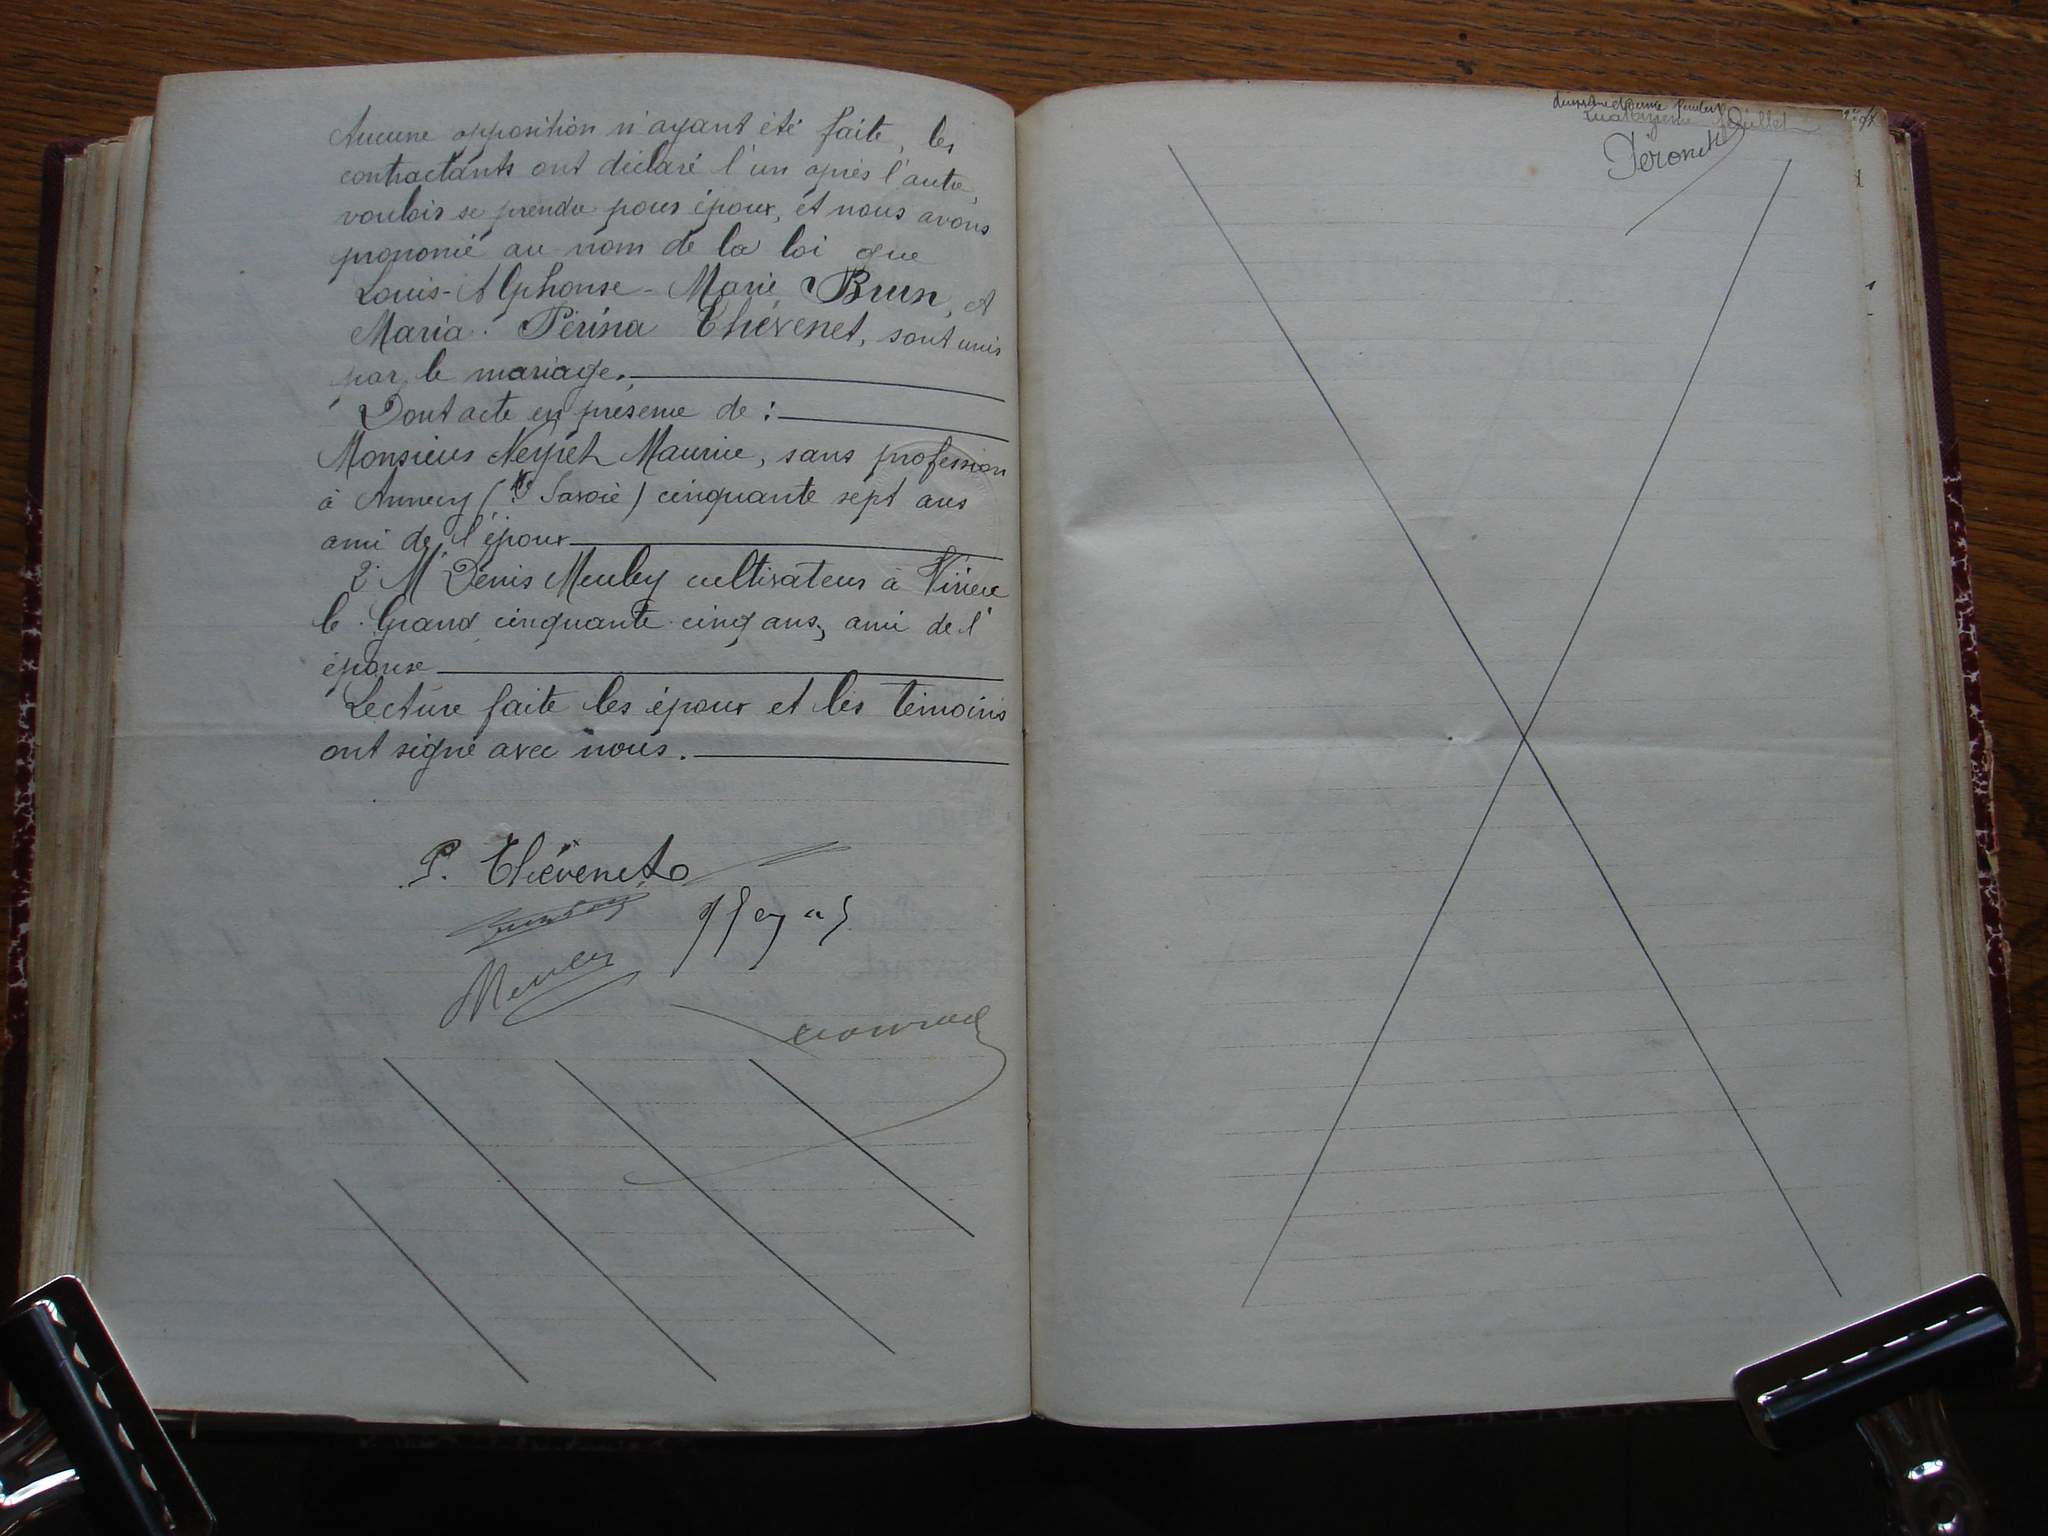 Aucune opposition n'ayant été faite, les
contractants ont déclaré l'un après l'autre,
vouloir se prendre pour époux, et nous avons
prononcé au nom de la loi que
Louis-Alphonse-Marie Brun, et
Maria. Périna Thévenet, sont unis
par le mariage.
Dont acte en présence de :
Monsieur Neyret Maurice, sans profession
à Annecy (Hte Savoie) cinquante sept ans
ami de l'époux
2° M Denis Meuley cultivateur à
le Grand cinquante cinq ans, ami de l'
épouse
Lecture faite les époux et les témoins
ont signé avec nous.
P. Thévenet
Meuley
feuillet